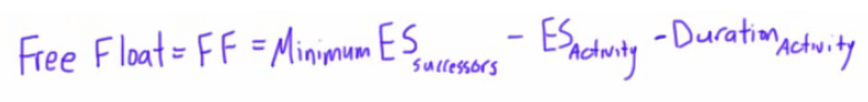 Free Float = FF = Minimum ES successors - ES Activity - Duration Activity